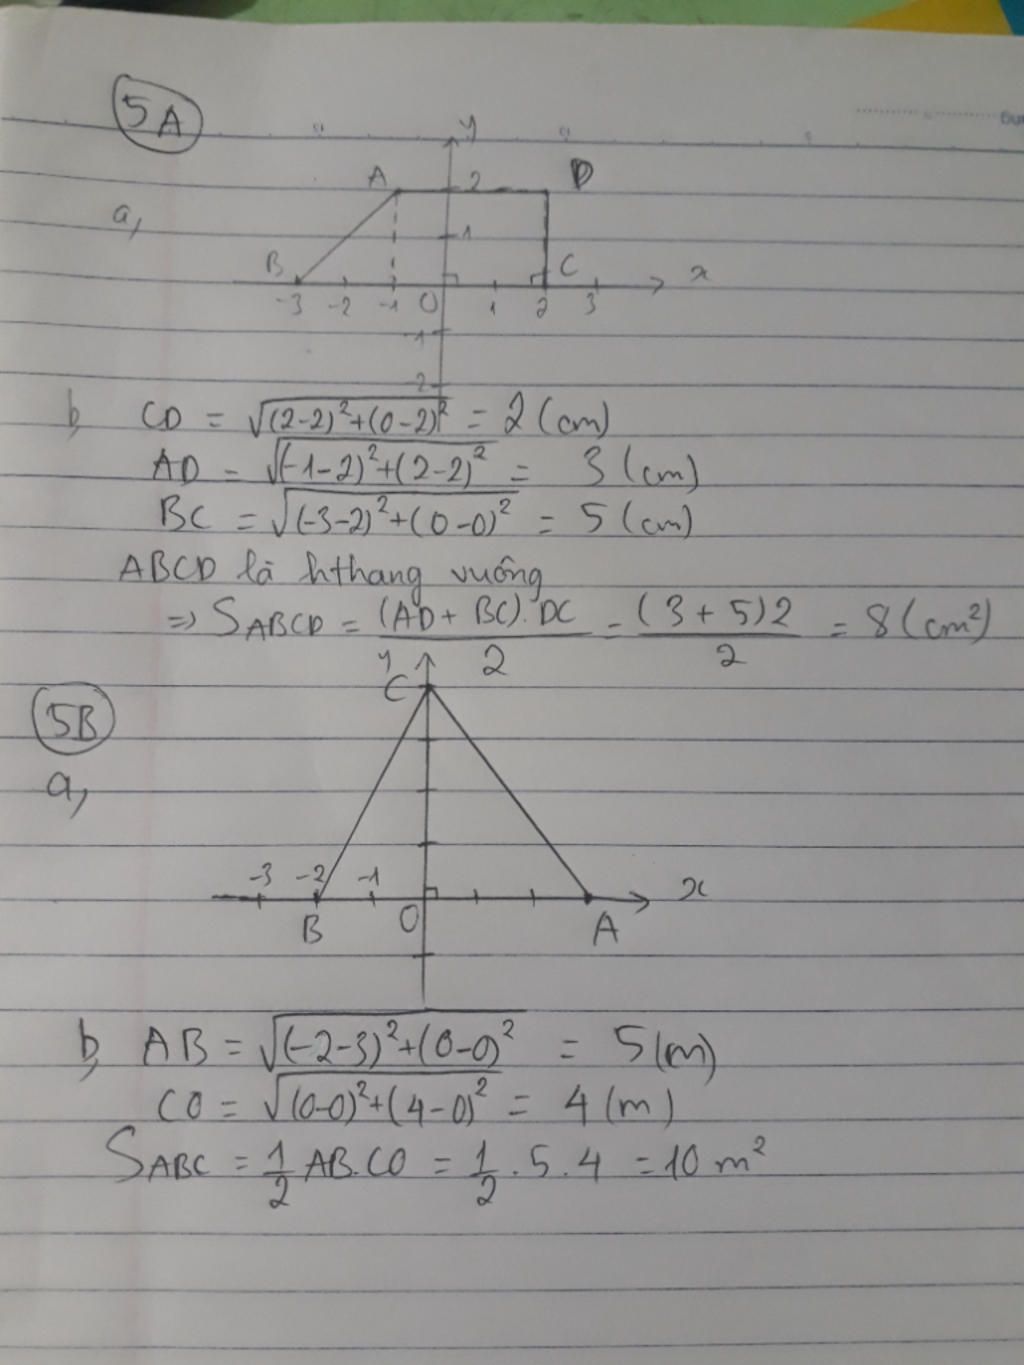 5A
y
A 2 D
a,
1
B C x
-3 -2 -1 O 1 2 3
-1
-2
b CD = √(2-2)²+(0-2)² = 2 (cm)
AD = √(-1-2)²+(2-2)² = 3 (cm)
BC = √(-3-2)²+(0-0)² = 5 (cm)
ABCD là hthang vuông
=> S_ABCD = (AD + BC).DC / 2 = (3 + 5)2 / 2 = 8 (cm²)
y
C
5B
a,
-3 -2 -1 x
B O A
b, AB = √(-2-3)²+(0-0)² = 5 (m)
CO = √(0-0)²+(4-0)² = 4 (m)
S_ABC = 1/2 AB.CO = 1/2 . 5 . 4 = 10 m²